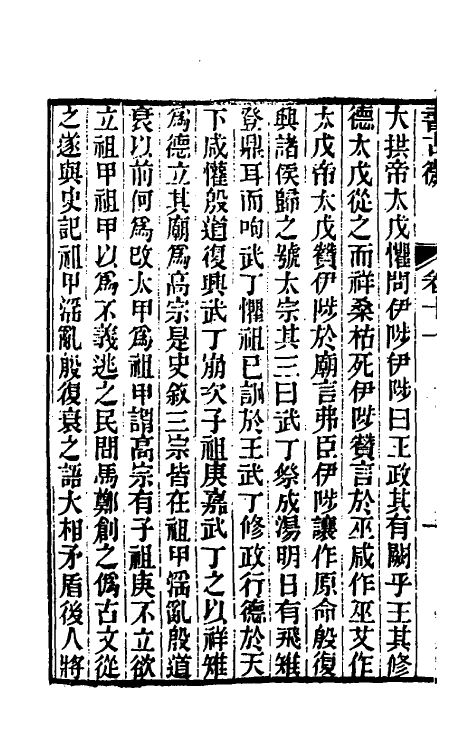 大拱帝太戊懼問伊陟伊陟曰王政其有闕乎王其修
德太戊從之而祥桑枯死伊陟贊言於巫咸作巫艾作
太戊帝太戊贊伊陟於廟言弗臣伊陟讓作原命殷復
興諸侯歸之號太宗其三曰武丁祭成湯明日有飛雉
登鼎耳而呴武丁懼祖已訓於王武丁修政行德於天
下咸懽殷道復興武丁崩次子祖庚嘉武丁之以祥雉
爲德立其廟爲高宗是史敘三宗皆在祖甲淫亂殷道
衰以前何爲改太甲爲祖甲謂高宗有子祖庚不立欲
立祖甲祖甲以爲不義逃之民間馬鄭創之僞古文從
之遂與史記祖甲淫亂殷復衰之語大相矛盾後人將
書古微
卷十一